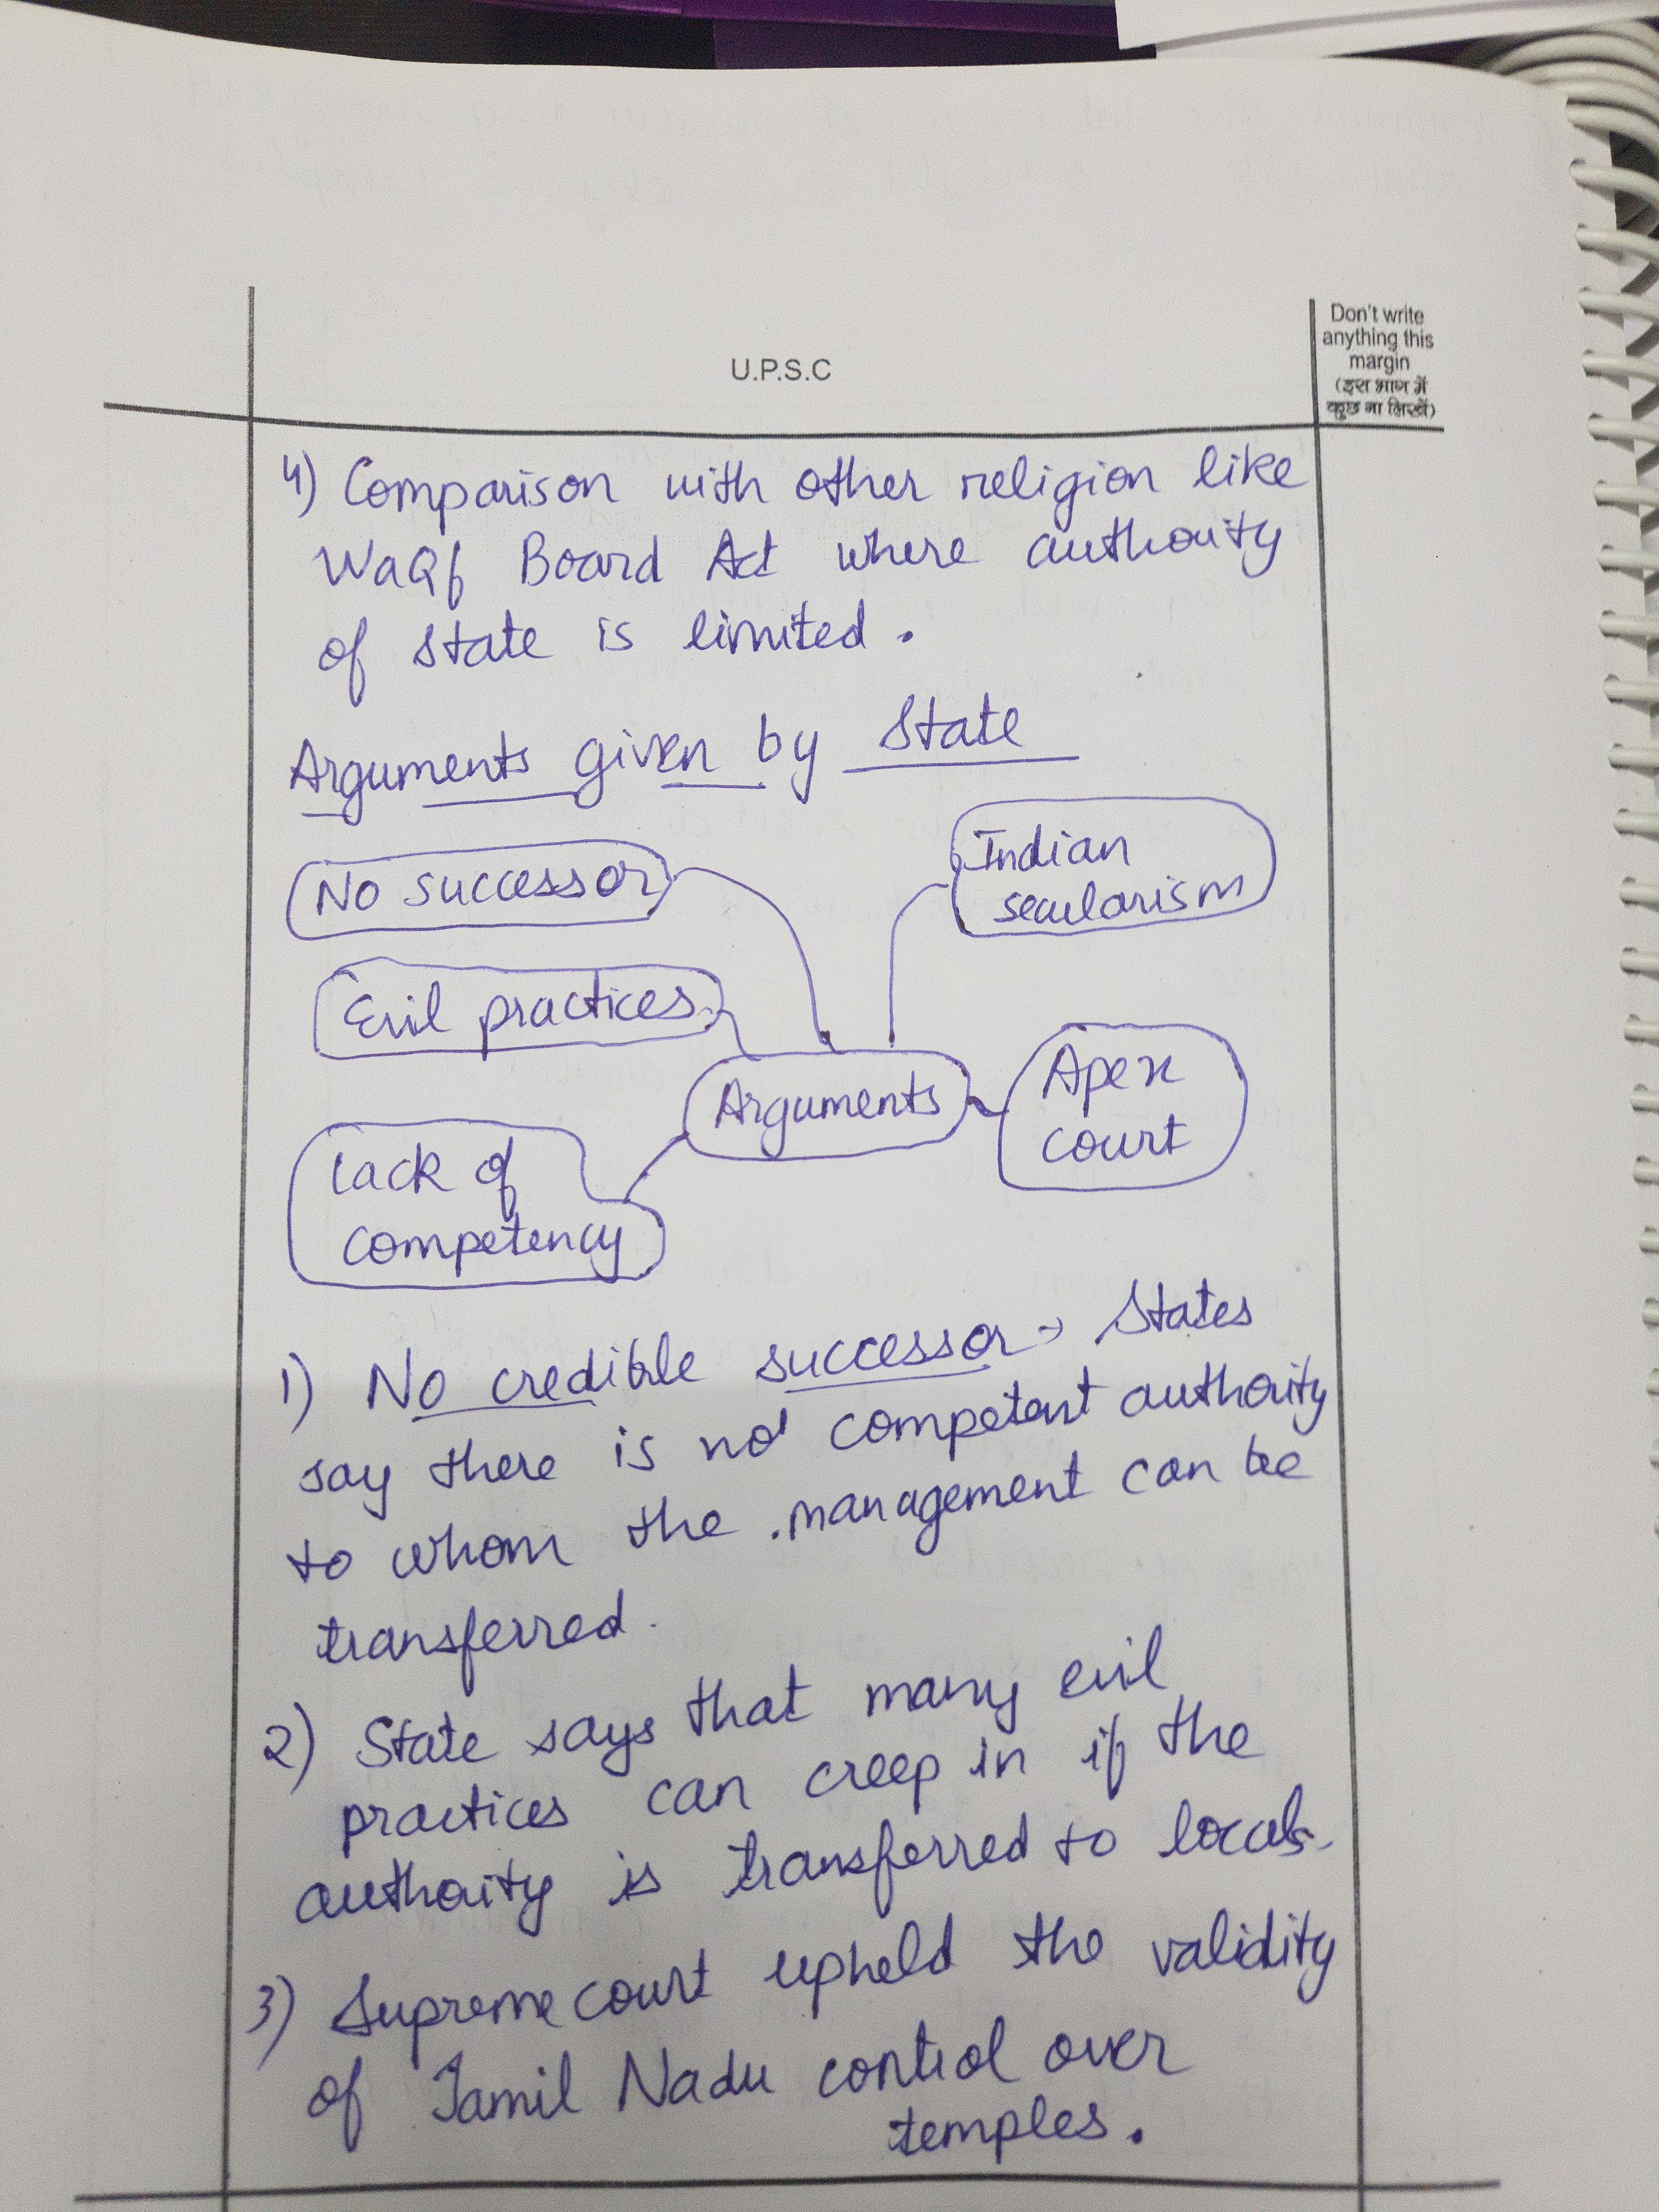 Don't write
anything this
margin
(इस भाग में
कुछ ना लिखें)
U.P.S.C
4) Comparison with other religion like
WaQf Board Act where authority
of state is limited.
Arguments given by State
No successor
Indian
secularism
Evil practices
Arguments
Apex
court
Lack of
competency
1) No credible successor → States
say there is no competent authority
to whom the management can be
transferred.
2) State says that many evil
practices can creep in if the
authority is transferred to locals.
3) Supreme court upheld the validity
of Tamil Nadu control over
temples.